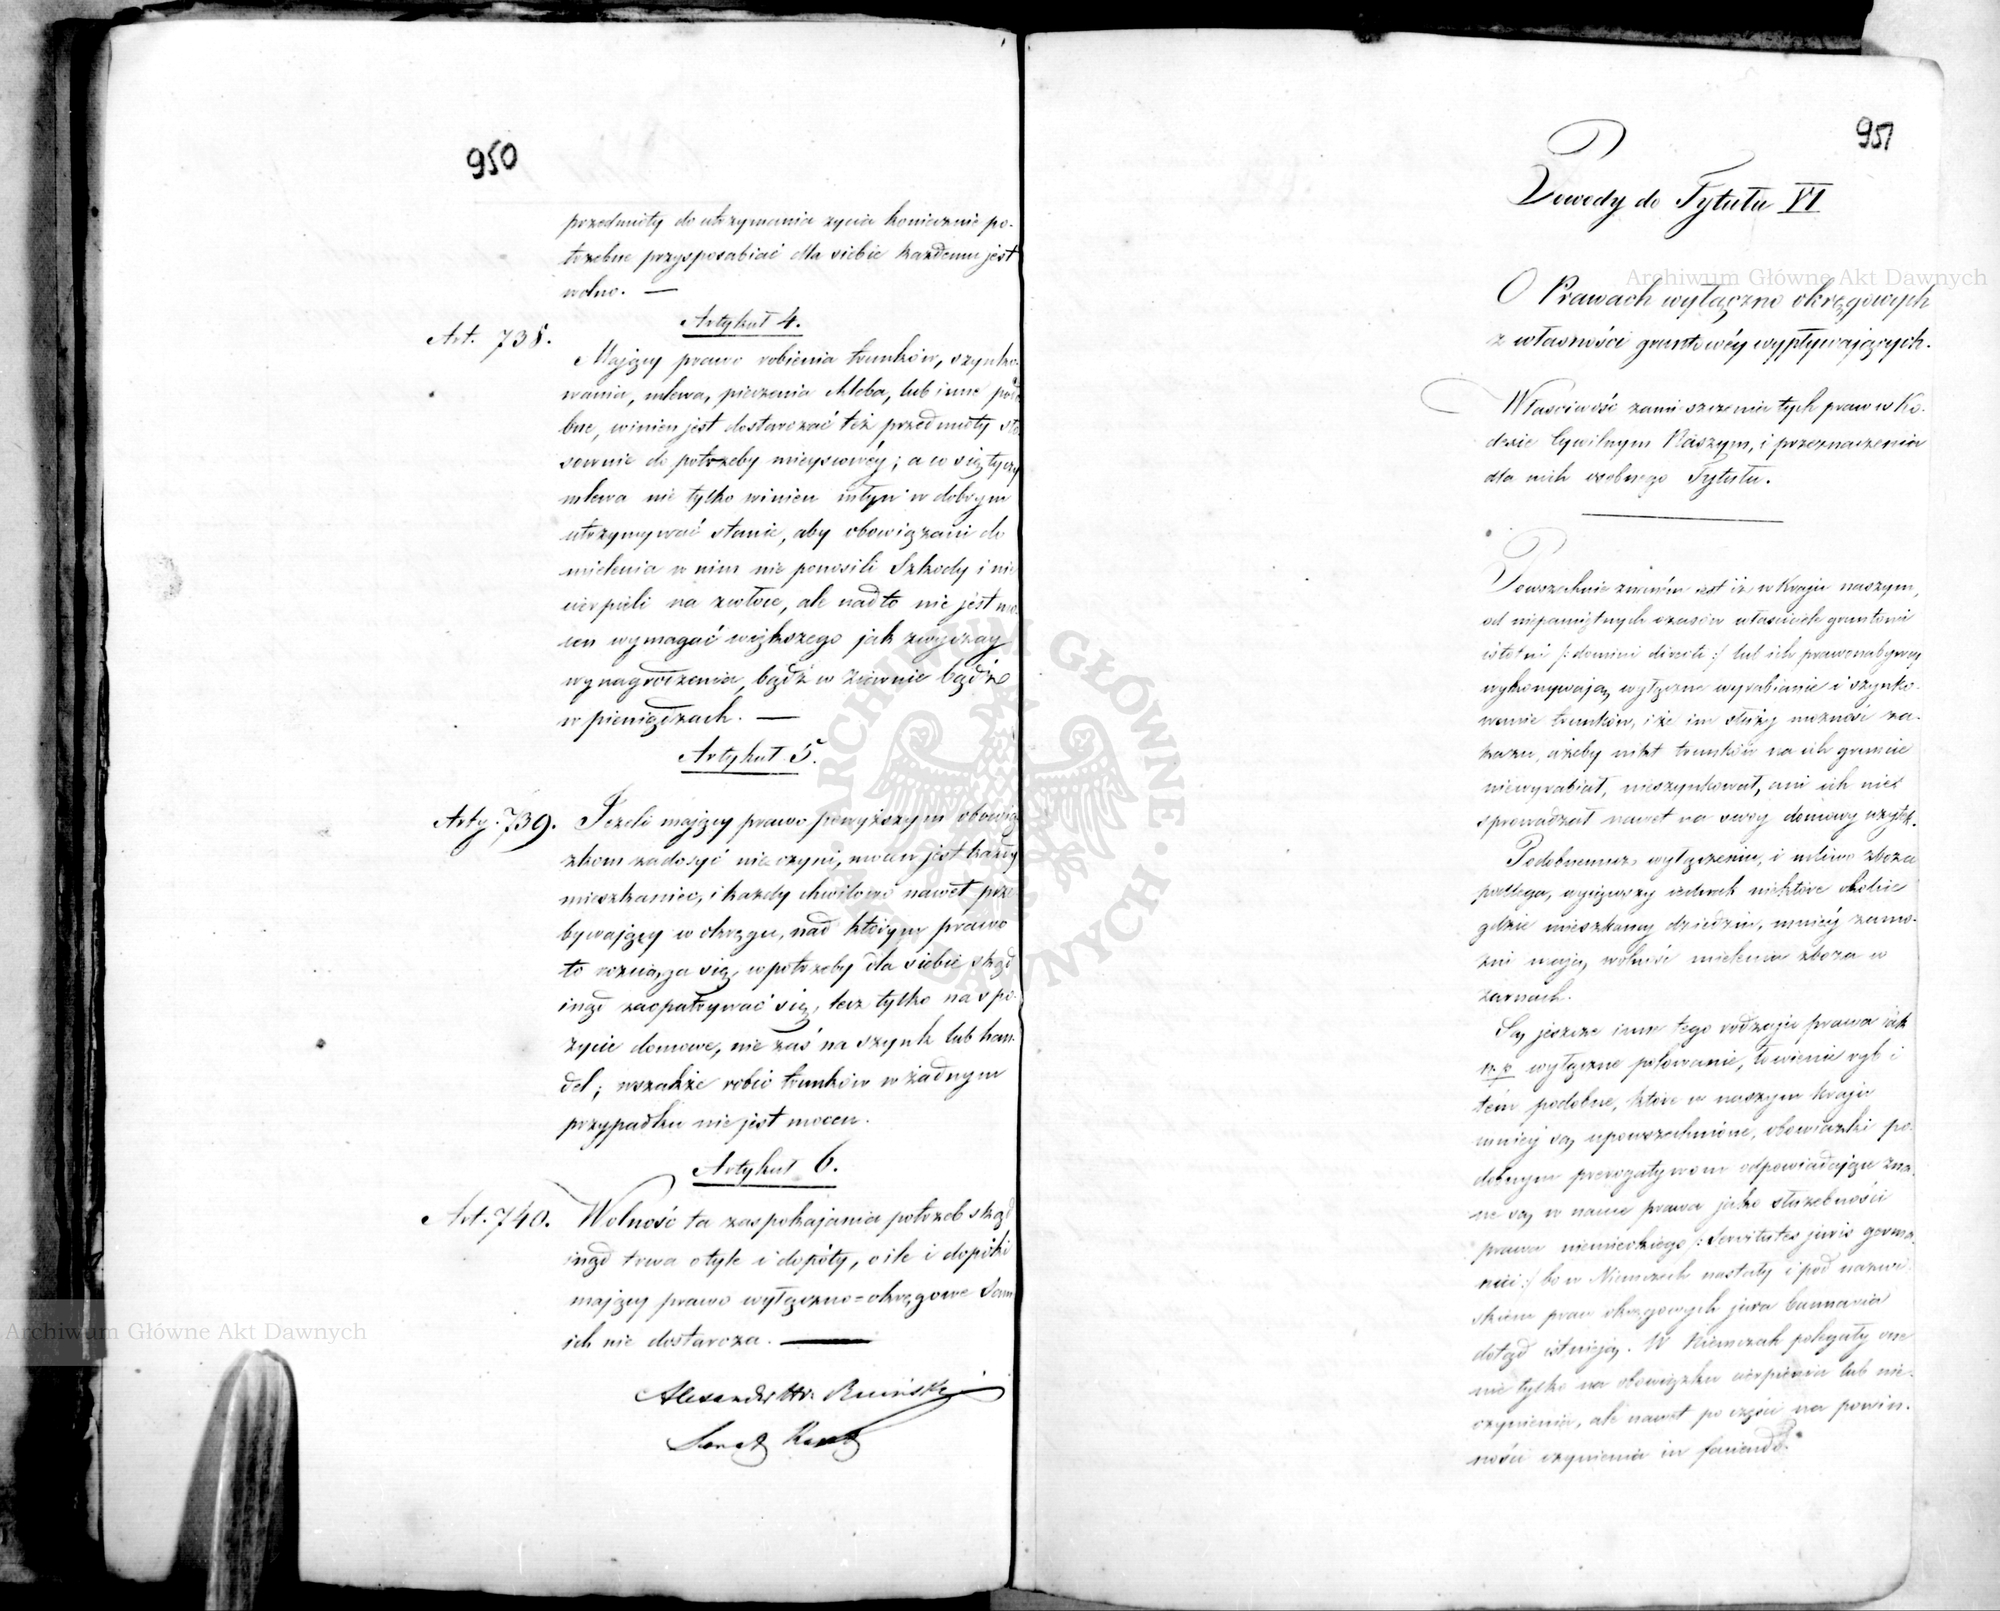 950
przedmioty do utrzymania życia koniecznie po-
trzebne przysposabiać dla siebie każdemu jest
wolno. —
Artykuł 4.
Art. 738.
Mający prawo robienia trunków, szynko-
wania, mlewa, pieczenia chleba, lub inne podo
bne, winien jest dostarczać też przedmioty sto
sownie do potrzeby mieyscowéy; a co się tyczy
mlewa nie tylko winien młyn w dobrym
utrzymywać stanie, aby obowiązani do
mielenia w nim nie ponosili szkody i nie
cierpieli na zwłoce, ale nadto nie jest mo
cen wymagać większego jak zwyczay
wynagrodzenia, bądź w ziarnie bądź
w pieniądzach. —
Artykuł 5.
Arty. 739.
Jeżeli mający prawo powyższym obowią
zkom zadosyć nie czyni, mocen jest każdy
mieszkaniec, i każdy chwilowo nawet prze
bywający w okręgu, nad którym prawo
to rozciąga się, w potrzeby dla siebie skąd
inąd zaopatrywać się, lecz tylko na spo-
życie domowe, nie zaś na szynk lub han-
del; wszakże robić trunków w żadnym
przypadku nie jest mocen.
Artykuł 6.
Art. 740.
Wolność ta zaspokajania potrzeb skąd
inąd trwa otyle i dopóty, oile i dopóki
mający prawo wyłączno=okręgowe sam
ich nie dostarcza. —
Alexander
951
Dowody do Tytułu VI
O Prawach wyłączno okręgowych
z własności gruntowéy wypływających.
Właściwość zamieszczenia tych praw w Ko-
dexie Cywilnym Naszym, i przeznaczenia
dla nich osobnego Tytułu.
Powszechnie znaném jest iż w Kraju naszym,
od niepamiętnych czasów właściciele gruntowi
istotni /: domini directi :/ lub ich prawonabywcy
wykonywają wyłączne wyrabianie i szynko-
wanie trunków, i że im służy możność za-
kazu, ażeby nikt trunków na ich gruncie
niewyrabiał, nieszynkował, ani ich nie
sprowadzał nawet na swoy domowy użytek.
Podobnemuż wyłączeniu, i mliwo zboża
podlega, wyiąwszy iednak niektóre okolice
gdzie mieszkańcy dziedzin, mniéy zamo-
żni maią wolność mielenia zboża w
żarnach.
Są jeszcze inne tego rodzaju prawa iak
n.p. wyłączne polowanie, łowienie ryb i
tém podobne, które w naszym kraju
mniéj są upowszechnione, obowiązki po-
dobnym prerogatywom odpowiadające zna-
ne są w nauce prawa jako służebności
prawa niemieckiego /: Servitutes juris germa-
nici :/ bo w Niemczech nastały i pod nazwi-
skiem praw okręgowych jura bannaria
dotąd istnieją. W Niemczech polegały one
nie tylko na obowiązku cierpienia lub nie-
czynienia, ale nawet po części na powin-
ności czynienia in faciendo.
Archiwum Główne Akt Dawnych
Archiwum Główne Akt Dawnych
ARCHIWUM GŁÓWNE AKT DAWNYCH